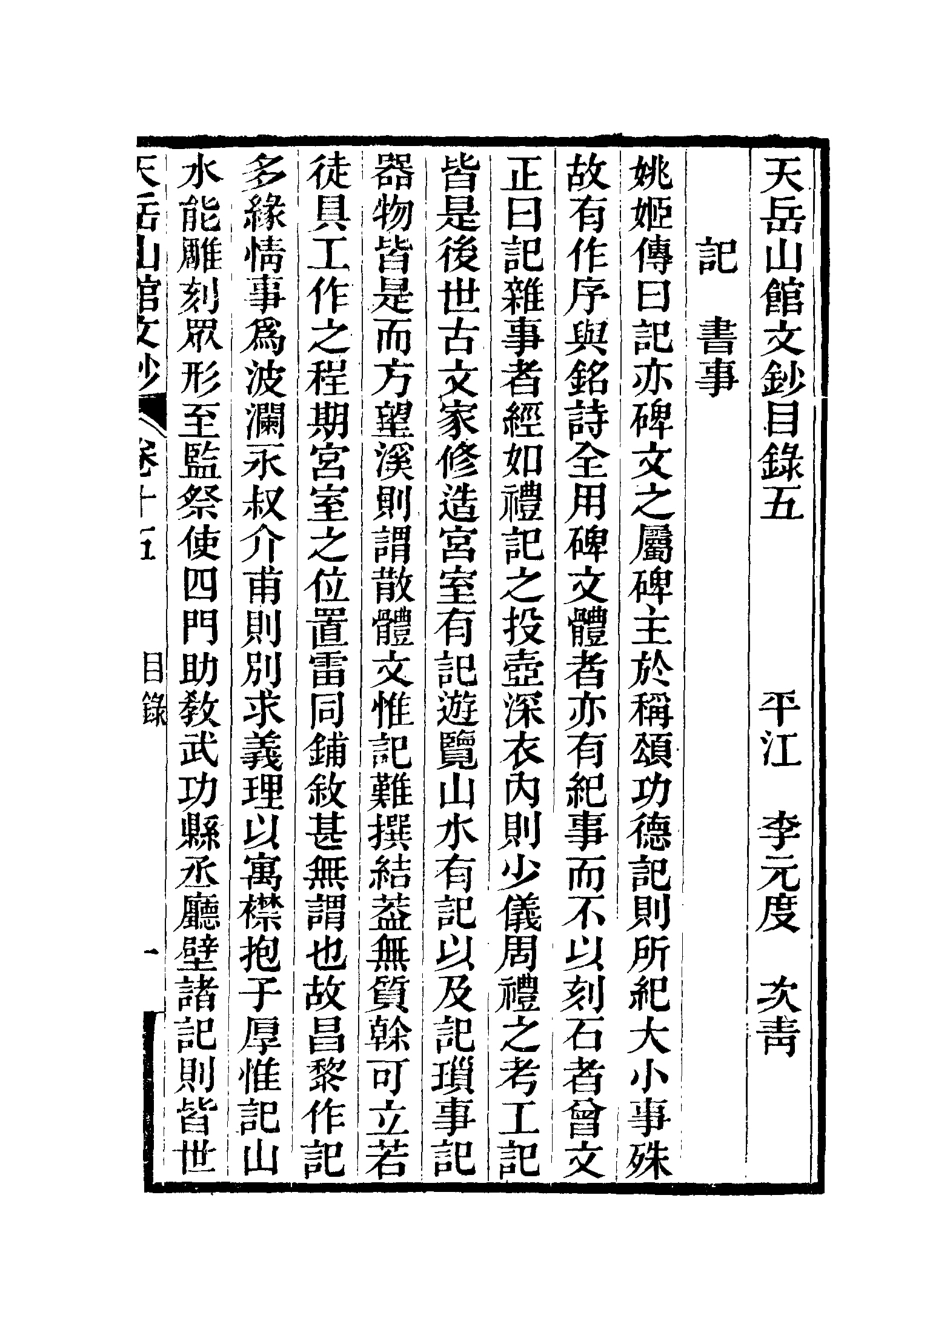 天岳山館文鈔目錄五　平江　李元度　次靑
記　書事
姚姬傳曰記亦碑文之屬碑主於稱頌功德記則所紀大小事殊
故有作序與銘詩全用碑文體者亦有紀事而不以刻石者曾文
正曰記雜事者經如禮記之投壺深衣內則少儀周禮之考工記
皆是後世古文家修造宮室有記遊覽山水有記以及記瑣事記
器物皆是而方望溪則謂散體文惟記難撰結葢無質榦可立若
徒具工作之程期宮室之位置雷同鋪敘甚無謂也故昌黎作記
多緣情事爲波瀾永叔介甫則別求義理以寓襟抱子厚惟記山
水能雕刻眾形至監祭使四門助敎武功縣丞廳壁諸記則皆世
天岳山館文鈔　卷十五　目錄　一